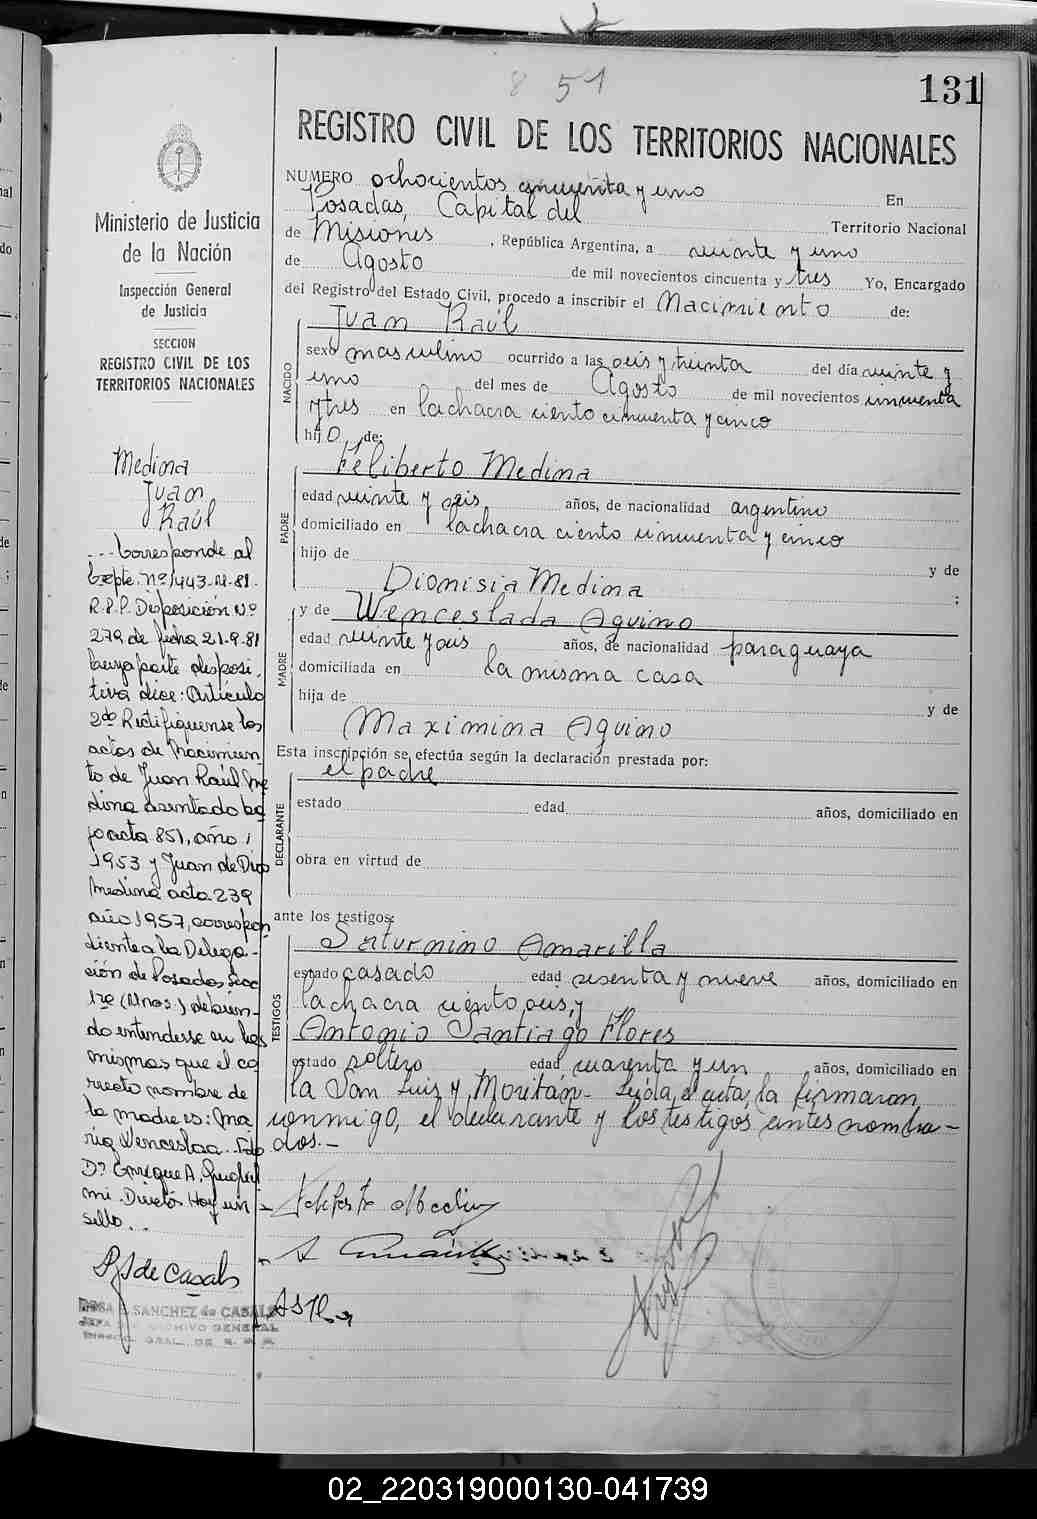 8 51
131
REGISTRO CIVIL DE LOS TERRITORIOS NACIONALES
NUMERO ochocientos cincuenta y uno En
Posadas, Capital del Territorio Nacional
de Misiones, República Argentina, a veinte y uno
de Agosto de mil novecientos cincuenta y tres Yo, Encargado
del Registro del Estado Civil, procedo a inscribir el Nacimiento de:
Juan Raúl
NACIDO
sexo masculino ocurrido a las seis y treinta del día veinte y
uno del mes de Agosto de mil novecientos cincuenta
y tres en la chacra ciento cincuenta y cinco
hijo de:
Feliberto Medina
PADRE
edad veinte y seis años, de nacionalidad argentino
domiciliado en la chacra ciento cincuenta y cinco
hijo de y de
Dionisia Medina ;
y de Wenceslada Aquino
MADRE
edad veinte y seis años, de nacionalidad paraguaya
domiciliada en la misma casa
hija de y de
Maximina Aquino
Esta inscripción se efectúa según la declaración prestada por:
el padre
DECLARANTE
estado edad años, domiciliado en
obra en virtud de
ante los testigos:
Saturnino Amarilla
TESTIGOS
estado casado edad sesenta y nueve años, domiciliado en
la chacra ciento seis, y
Antonio Santiago Flores
estado soltero edad cuarenta y un años, domiciliado en
la San Luis y Moritán. Leída el acta, la firmaron
conmigo, el declarante y los testigos antes nombra-
dos.-
Ministerio de Justicia
de la Nación
Inspección General
de Justicia
SECCION
REGISTRO CIVIL DE LOS
TERRITORIOS NACIONALES
Medina
Juan
Raúl
... Corresponde al
Expte. Nº 1443-M-81-
R.P.P. Disposición Nº
279 de fecha 21-9-81
cuya parte disposi-
tiva dice: Artículo
2do Rectifiquense los
actos de Nacimien
to de Juan Raúl Me
dina asentado ba
jo acta 851, año
1953 y Juan de Dios
Medina acta 239
año 1957, correspon
diente a la Delega-
ción de Posadas Secc
1ra (Mnes.) debien-
do entenderse en los
mismos que el co
rrecto nombre de
la madre es: Ma
ria Wenceslaa. Fdo
Dr. Enrique A.
Director Hay un
sello...
R S de Casals
ROSA SANCHEZ de CASALS
JEFA ARCHIVO GENERAL
GRAL. DE
02_220319000130-041739